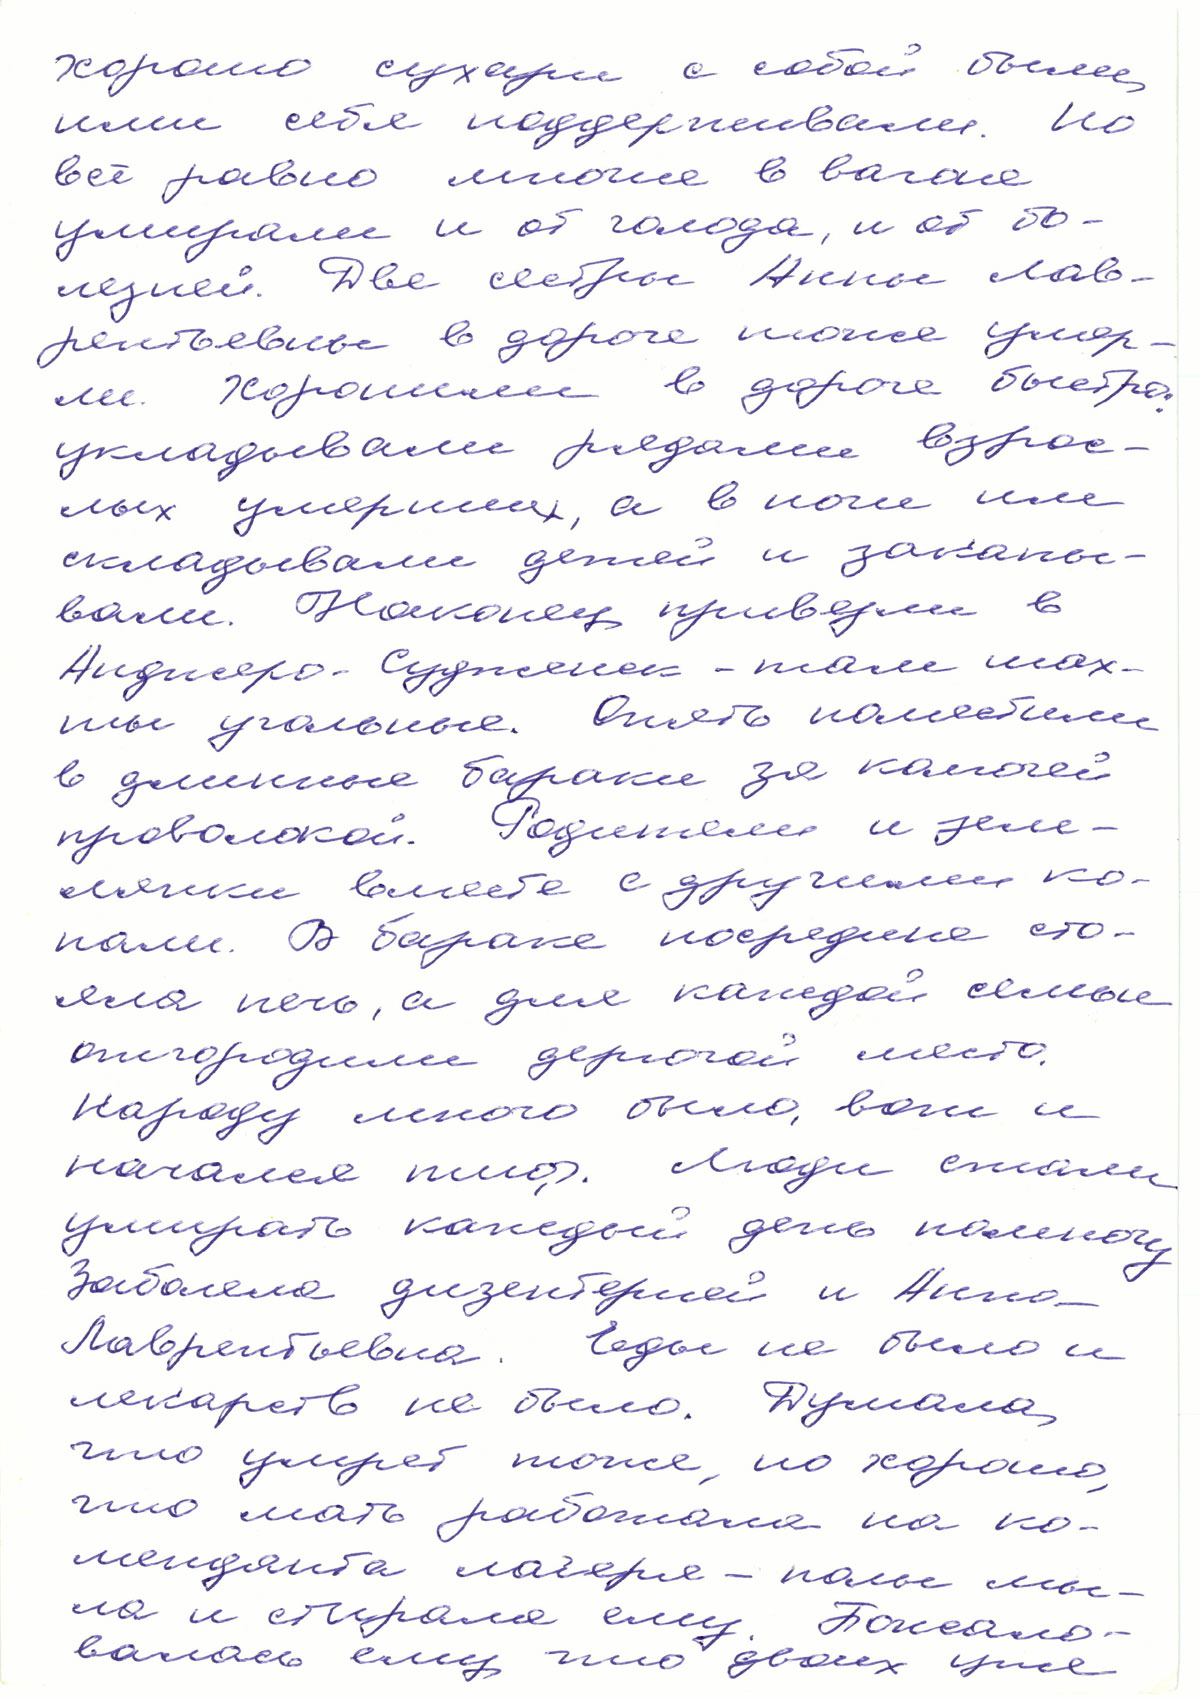 хорошо сухари с собой были,
ими себя поддерживали. Но
всё равно многие в вагоне
умирали и от голода, и от бо-
лезней. Две сестры Анны Лав-
рентьевны в дороге тоже умер-
ли. Хоронили в дороге быстро:
укладывали рядами взрос-
лых умерших, а в ноги им
складывали детей и закапы-
вали. Наконец привезли в
Анджеро-Судженск - там шах-
ты угольные. Опять поместили
в длинные бараки за колючей
проволокой. Родители и зем-
лянки вместе с другими ко-
пали. В бараке посредине сто-
яла печь, а для каждой семьи
отгородили дерюгой место.
Народу много было, вот и
начался тиф. Люди стали
умирать каждый день помногу
Заболела дизентерией и Анна
Лаврентьевна. Еды не было и
лекарств не было. Думала,
что умрет тоже, но хорошо,
что мать работала на ко-
менданта лагеря - полы мы-
ла и стирала ему. Пожало-
валась ему что двоих уже